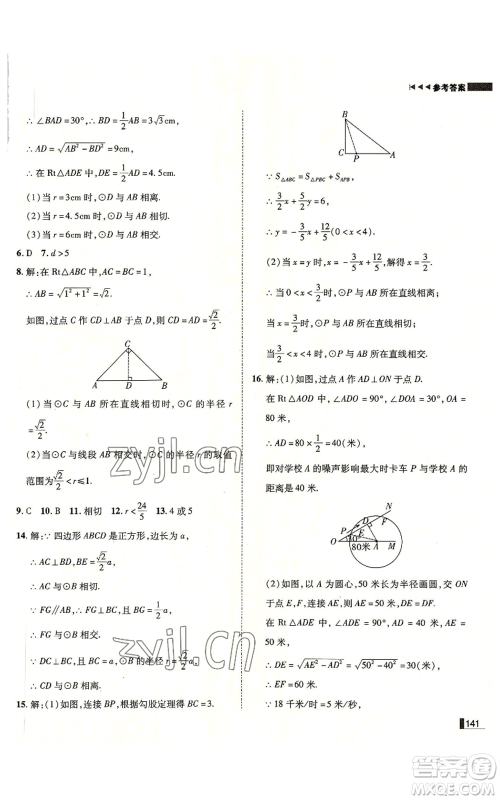 参考答案
∴ ∠BAD=30°,∴ BD=1/2 AB=3√3 cm,
∴ AD=√(AB²-BD²)=9cm,
∴ 在 Rt△ADE 中,DE=1/2 AD=4.5cm.
(1)当 r=3cm 时,⊙D 与 AB 相离.
(2)当 r=4.5cm 时,⊙D 与 AB 相切.
(3)当 r=6cm 时,⊙D 与 AB 相交.
6. D 7. d>5
8. 解:在 Rt△ABC 中,AC=BC=1,
∴ AB=√(1²+1²)=√2.
如图,过点 C 作 CD⊥AB 于点 D,则 CD=
√2/2.
C
A D B
(1)当⊙C 与 AB 所在直线相切时,⊙C 的半径 r
=√2/2.
(2)当⊙C 与线段 AB 相交时,⊙C 的半径 r 的取值
范围为 √2/2<r≤1.
9. C 10. B 11. 相切 12. r<24/5 13. 4 或 5
14. 解:∵ 四边形 ABCD 是正方形,边长为 a,
∴ AC⊥BD,BE=√2/2 a,
∴ AC 与⊙B 相切.
∵ FG∥AC,∴ FG⊥BD,
∴ FG 与⊙B 相交.
∵ DC⊥BC 且 BC=a 大于⊙B 的半径 r=√2/2 a,
∴ CD 与⊙B 相离.
15. 解:(1)如图,连接 BP,根据勾股定理得 BC=3.
B
C P A
∵ S△ABC=S△PBC+S△APB,
∴ 3/2 x+5/2 y=6,
∴ y=-3/5 x+12/5(0<x<4).
(2)当 x=y 时,-3/5 x+12/5=x,解得 x=3/2.
∴ 当 0<x<3/2 时,⊙P 与 AB 所在直线相离;
当 x=3/2 时,⊙P 与 AB 所在直线相切;
当 3/2<x<4 时,⊙P 与 AB 所在直线相交.
16. 解:(1)如图,过点 A 作 AD⊥ON 于点 D.
在 Rt△AOD 中,∠ADO=90°,∠DOA=30°,OA=
80 米,
∴ AD=80×1/2=40(米),
即对学校 A 的噪声影响最大时卡车 P 与学校 A 的
距离是 40 米.
N
F
D
P
E
O 30° A M
80米
(2)如图,以 A 为圆心,50 米长为半径画圆,交 ON 于
点 E,F,连接 AE,则 DE=DF.
在 Rt△ADE 中,∠ADE=90°,AD=40 米,AE=
50 米,
∴ DE=√(AE²-AD²)=√(50²-40²)=30(米),
∴ EF=60 米.
∵ 18 千米/时=5 米/秒,
141
zyjl.cn
zyjl.cn